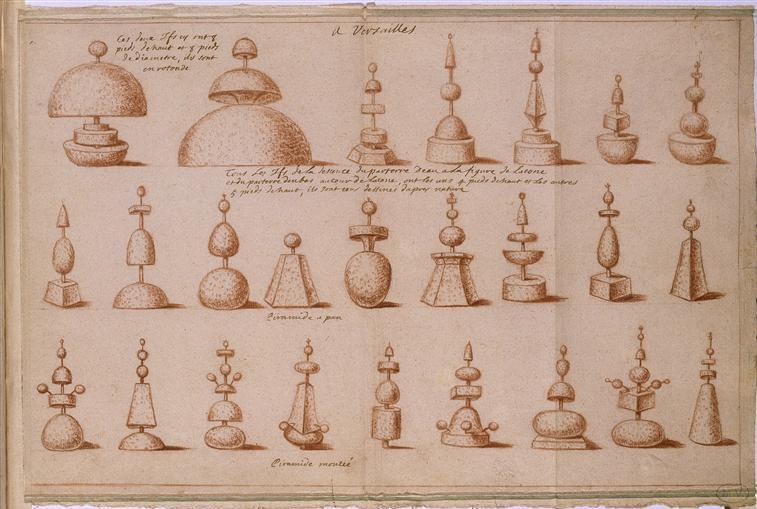 A Versailles
Ces deux Ifs cy ont 8
pieds de haut et 8 pieds
de diametre, ils sont
en rotonde
Tous Les Ifs de la dessence du parterre Deau a la figure de Latone
et du parterre den bas autour de Latone, ont les uns 4 pieds de haut et Les autres
5 pieds de haut, ils sont tous dessinés dapres nature
Piramide a pan
Piramide montée